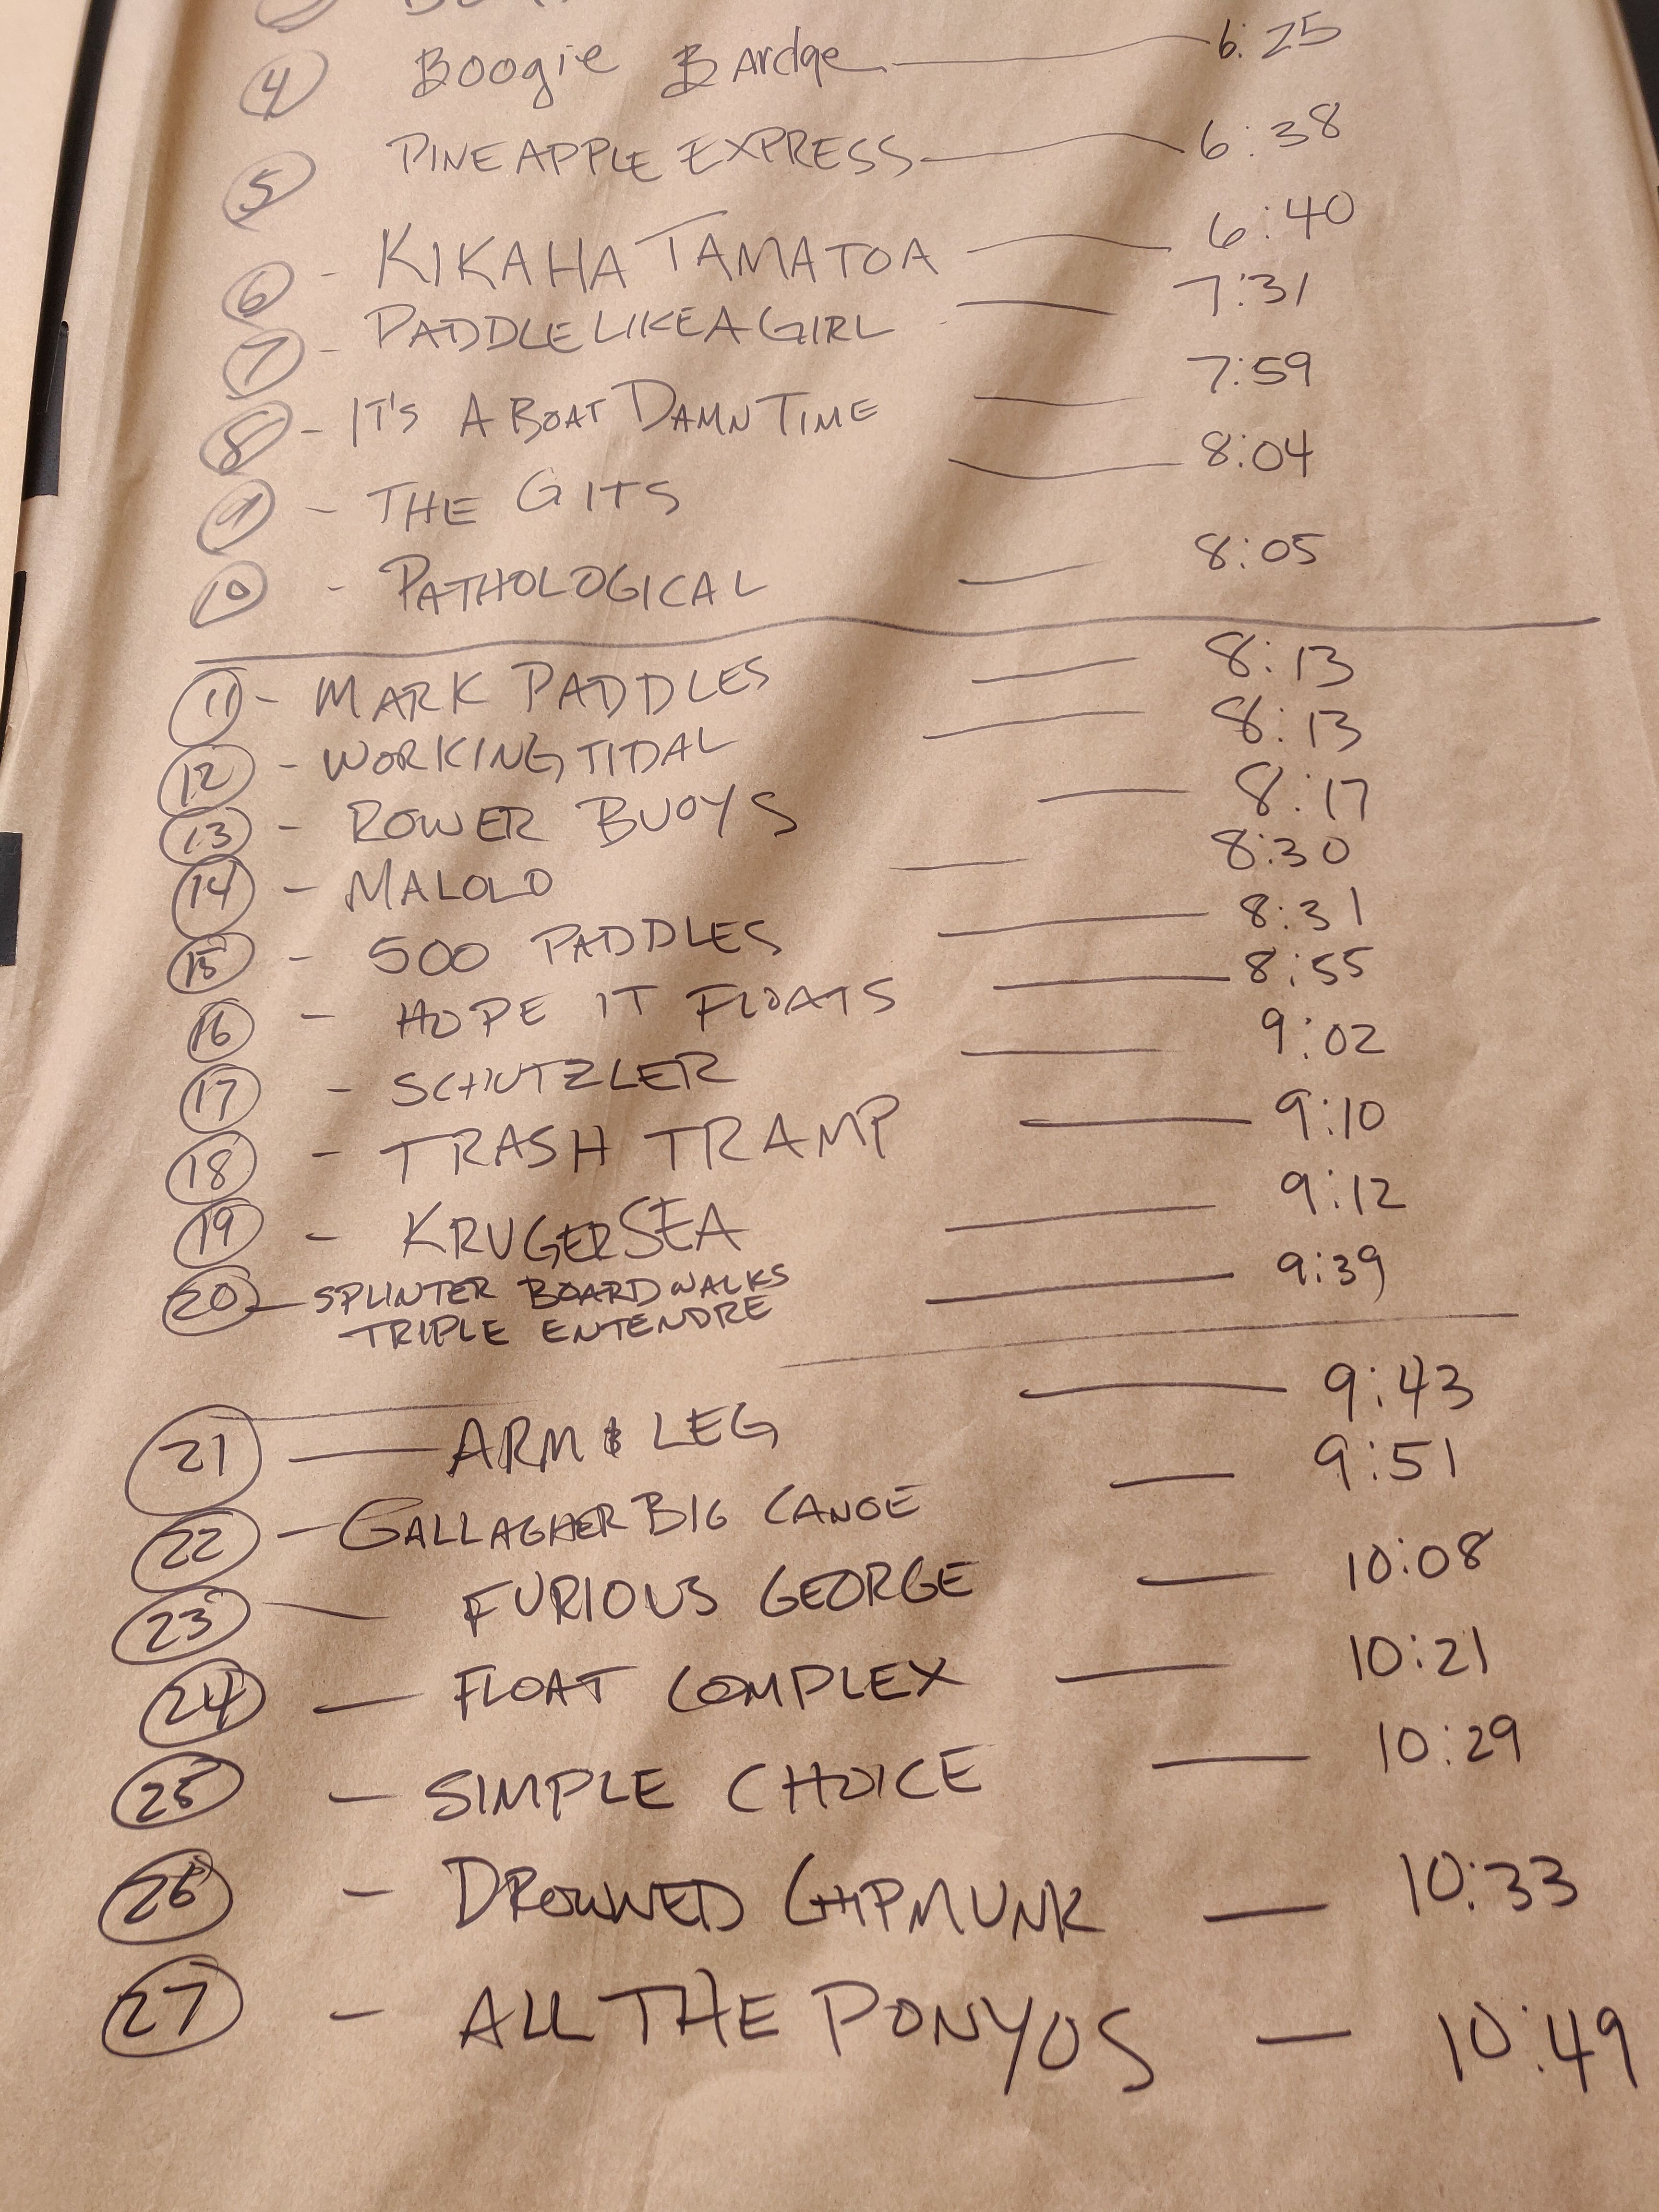 4 Boogie Bardge 6:25
5 PINEAPPLE EXPRESS 6:38
6 - KIKAHA TAMATOA 6:40
7 - PADDLE LIKE A GIRL 7:31
8 - IT'S A BOAT DAMN TIME 7:59
9 - THE GITS 8:04
10 - PATHOLOGICAL 8:05
11 - MARK PADDLES 8:13
12 - WORKING TIDAL 8:13
13 - ROWER BUOYS 8:17
14 - MALOLO 8:30
15 - 500 PADDLES 8:31
16 - HOPE IT FLOATS 8:55
17 - SCHUTZLER 9:02
18 - TRASH TRAMP 9:10
19 - KRUGER SEA 9:12
20 - SPLINTER BOARDWALKS 9:39
TRIPLE ENTENDRE
21 - ARM & LEG 9:43
22 - GALLAGHER BIG CANOE 9:51
23 - FURIOUS GEORGE 10:08
24 - FLOAT COMPLEX 10:21
25 - SIMPLE CHOICE 10:29
26 - DROWNED CHIPMUNK - 10:33
27 - ALL THE PONYOS - 10:49